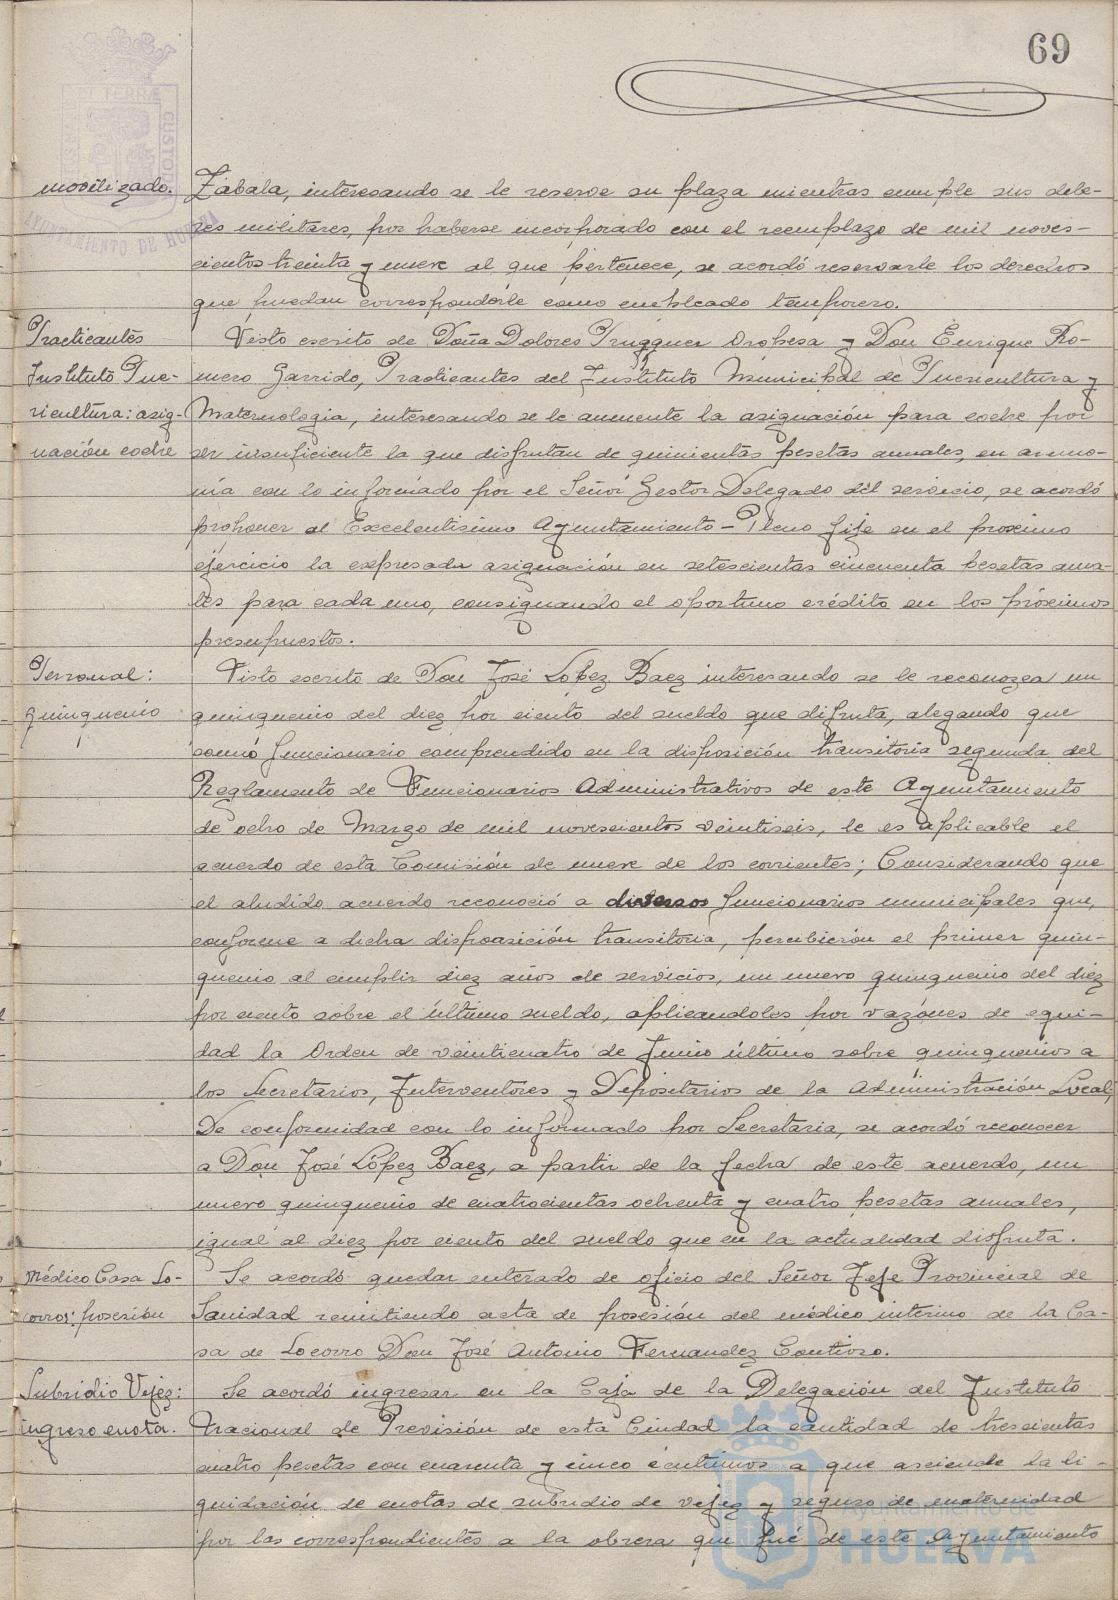 69
movilizado. Zabala, interesando se le reserve su plaza mientras cumple sus debe-
res militares, por haberse incorporado con el reemplazo de mil noves-
cientos treinta y nueve al que pertenece, se acordó reservarle los derechos
que puedan corresponderle como empleado temporero.
Practicantes Visto escrito de Doña Dolores Oropesa y Don Enrique Ro-
Instituto Pue- mero Garrido, Practicantes del Instituto Municipal de Puericultura y
ricultura: asig- Maternologia, interesando se le aumente la asignación para coche por
nación coche ser insuficiente la que disfrutan de quinientas pesetas anuales, en armo-
nía con lo informado por el Señor Gestor Delegado del servicio, se acordó
proponer al Excelentisimo Ayuntamiento-Pleno fije en el proximo
ejercicio la expresada asignación en setescientas cincuenta pesetas anua-
les para cada uno, consignando el oportuno crédito en los próximos
presupuestos.
Personal: Visto escrito de Don José López Baez interesando se le reconozca un
quinquenio quinquenio del diez por ciento del sueldo que difruta, alegando que
como funcionario comprendido en la disposición transitoria segunda del
Reglamento de Funcionarios Administrativos de este Ayuntamiento
de ocho de Marzo de mil novescientos veintiseis, le es aplicable el
acuerdo de esta Comisión de nueve de los corrientes; Considerando que
el aludido acuerdo reconoció a diversos funcionarios municipales que,
conforme a dicha disposición transitoria, percibieron el primer quin-
quenio al cumplir diez años de servicios, un nuevo quinquenio del diez
por ciento sobre el último sueldo, aplicandoles por razónes de equi-
dad la Orden de veinticuatro de Junio último sobre quinquenios a
los Secretarios, Interventores y Depositarios de la Administración Local,
De conformidad con lo informado por Secretaria, se acordó reconocer
a Don José López Baez, a partir de la fecha de este acuerdo, un
nuevo quinquenio de cuatrocientas ochenta y cuatro pesetas anuales,
igual al diez por ciento del sueldo que en la actualidad disfruta.
Médico Casa So- Se acordó quedar enterado de oficio del Señor Jefe Provincial de
corro: posesión Sanidad remitiendo acta de posesión del médico interino de la Ca-
sa de Socorro Don José Antonio Fernandez Contioso.
Subsidio Vejez: Se acordó ingresar en la Caja de la Delegación del Instituto
ingreso cuota. Nacional de Previsión de esta Ciudad la cantidad de trescientas
cuatro pesetas con cuarenta y cinco céntimos a que asciende la li-
quidación de cuotas de subsidio de vejez y seguro de maternidad
por las correspondientes a la obrera que fué de este Ayuntamiento
AYUNTAMIENTO DE HUELVA
CUSTODIA
ET TERRÆ
Ayuntamiento de
HUELVA